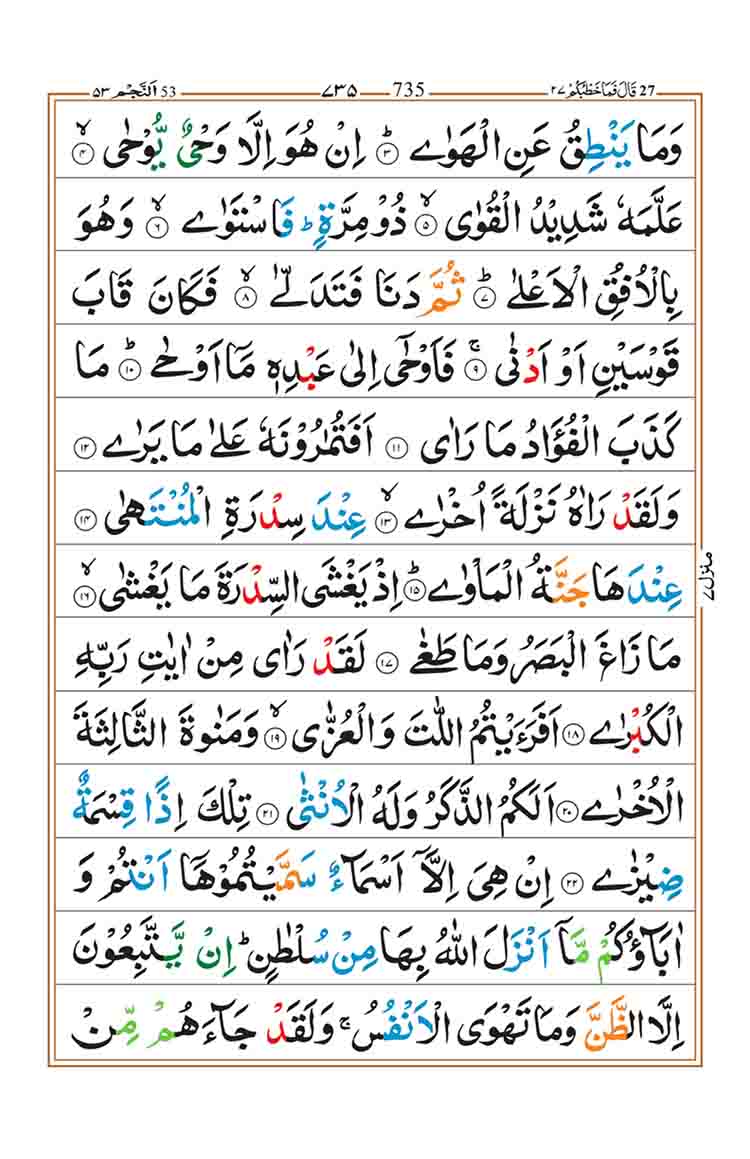 27 قَالَ فَمَا خَطْبُكُمْ ٢٧ 735 ٧٣٥ 53 اَلنَّجْم ٥٣
وَمَا يَنْطِقُ عَنِ الْهَوٰے ؕ‏ ٣ اِنْ هُوَ اِلَّا وَحْىٌ يُّوْحٰى ۙ‏ ٤
عَلَّمَهٗ شَدِيْدُ الْقُوٰى ۙ‏ ٥ ذُوْ مِرَّةٍ ؕ فَاسْتَوٰے ۙ‏ ٦ وَهُوَ
بِالْاُفُقِ الْاَعْلٰے ؕ‏ ٧ ثُمَّ دَنَا فَتَدَلّٰے ۙ‏ ٨ فَكَانَ قَابَ
قَوْسَيْنِ اَوْ اَدْنٰى ۚ‏ ٩ فَاَوْحٰۤى اِلٰى عَبْدِهٖ مَاۤ اَوْحٰے ؕ‏ ١٠ مَا
كَذَبَ الْفُؤَادُ مَا رَاٰى ١١ اَفَتُمٰرُوْنَهٗ عَلٰے مَا يَرٰے ١٢
وَلَقَدْ رَاٰهُ نَزْلَةً اُخْرٰے ۙ‏ ١٣ عِنْدَ سِدْرَةِ الْمُنْتَهٰى ١٤
عِنْدَهَا جَنَّةُ الْمَاْوٰے ؕ‏ ١٥ اِذْ يَغْشَى السِّدْرَةَ مَا يَغْشٰى ۙ‏ ١٦
مَا زَاغَ الْبَصَرُ وَمَا طَغٰے ١٧ لَقَدْ رَاٰى مِنْ اٰيٰتِ رَبِّهِ
الْكُبْرٰے ١٨ اَفَرَءَيْتُمُ اللّٰتَ وَالْعُزّٰى ۙ‏ ١٩ وَمَنٰوةَ الثَّالِثَةَ
الْاُخْرٰے ٢٠ اَلَكُمُ الذَّكَرُ وَلَهُ الْاُنْثٰى ٢١ تِلْكَ اِذًا قِسْمَةٌ
ضِيْزٰے ٢٢ اِنْ هِىَ اِلَّاۤ اَسْمَآءٌ سَمَّيْتُمُوْهَاۤ اَنْتُمْ وَ
اٰبَآؤُكُمْ مَّاۤ اَنْزَلَ اللّٰهُ بِهَا مِنْ سُلْطٰنٍ ؕ اِنْ يَّتَّبِعُوْنَ
اِلَّا الظَّنَّ وَمَا تَهْوَى الْاَنْفُسُ ۚ وَلَقَدْ جَآءَهُمْ مِّنْ
منزل ٧